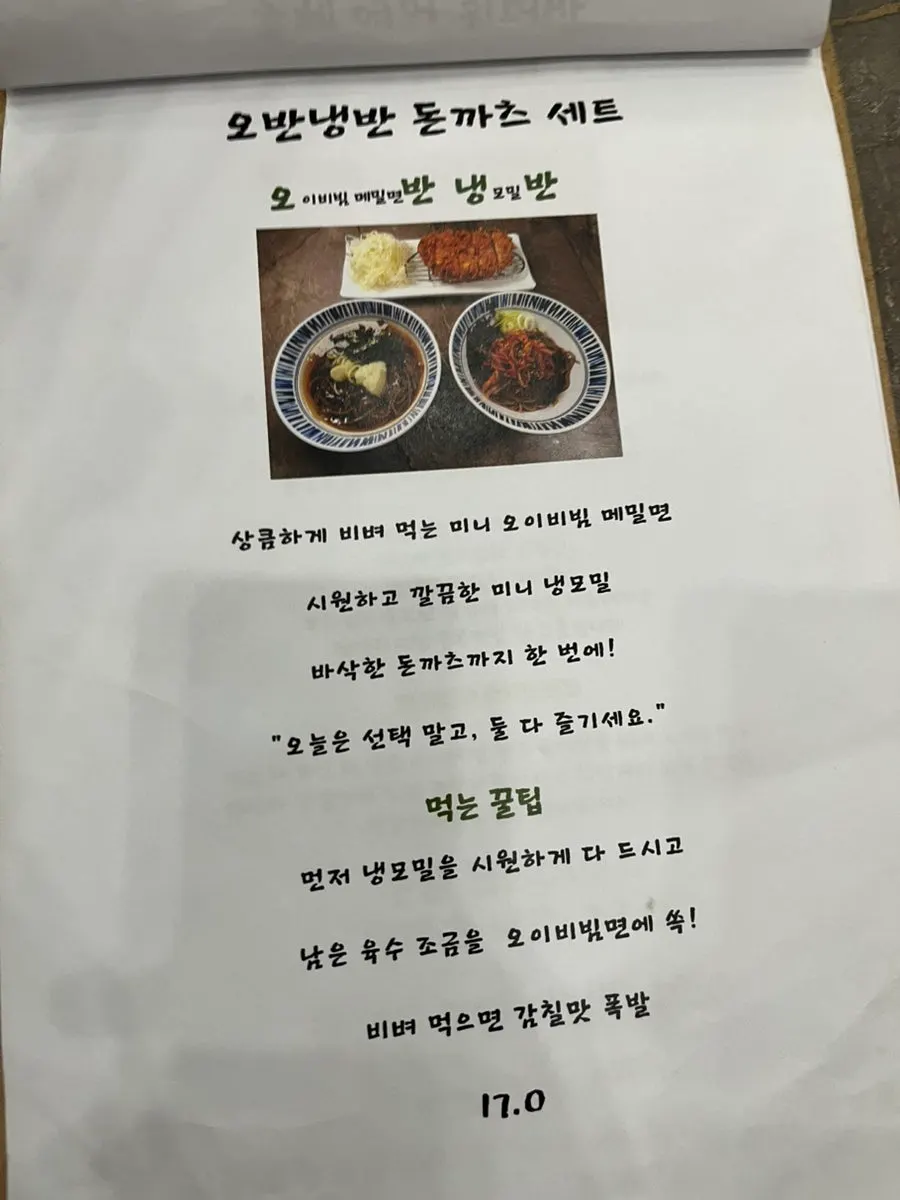 오반냉반 돈까츠 세트
오이비빔 메밀면반 냉모밀반
상큼하게 비벼 먹는 미니 오이비빔 메밀면
시원하고 깔끔한 미니 냉모밀
바삭한 돈까츠까지 한 번에!
"오늘은 선택 말고, 둘 다 즐기세요."
먹는 꿀팁
먼저 냉모밀을 시원하게 다 드시고
남은 육수 조금을 오이비빔면에 쏙!
비벼 먹으면 감칠맛 폭발
17.0